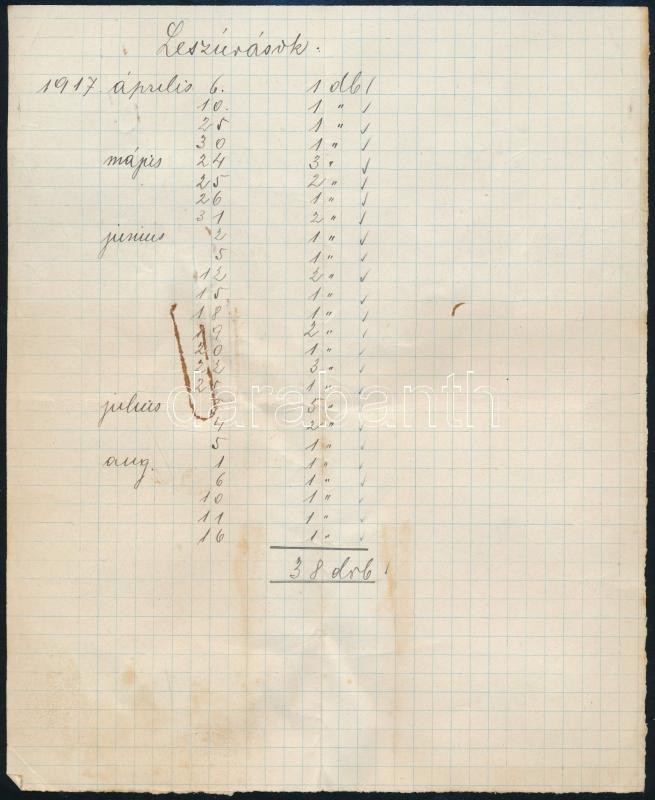 Leszúrások.
1917 április 6. 1 db /
10. 1 " /
25 1 " /
30 1 " /
május 24 3 " /
25 2 " /
26 1 " /
31 2 " /
junius 2 1 " /
5 1 " /
12 2 " /
15 1 " /
18 1 " /
19 2 " /
20 1 " /
22 3 " /
25 1 " /
julius 5 " /
4 2 " /
5 1 " /
aug. 1 1 " /
6 1 " /
10 1 " /
11 1 " /
16 1 " /
38 drb /
darabanth